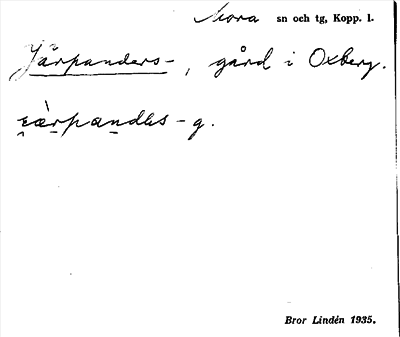 Mora sn och tg, Kopp. l.
Järpanders-, gård i Oxberg.
-g.
Bror Lindén 1935.